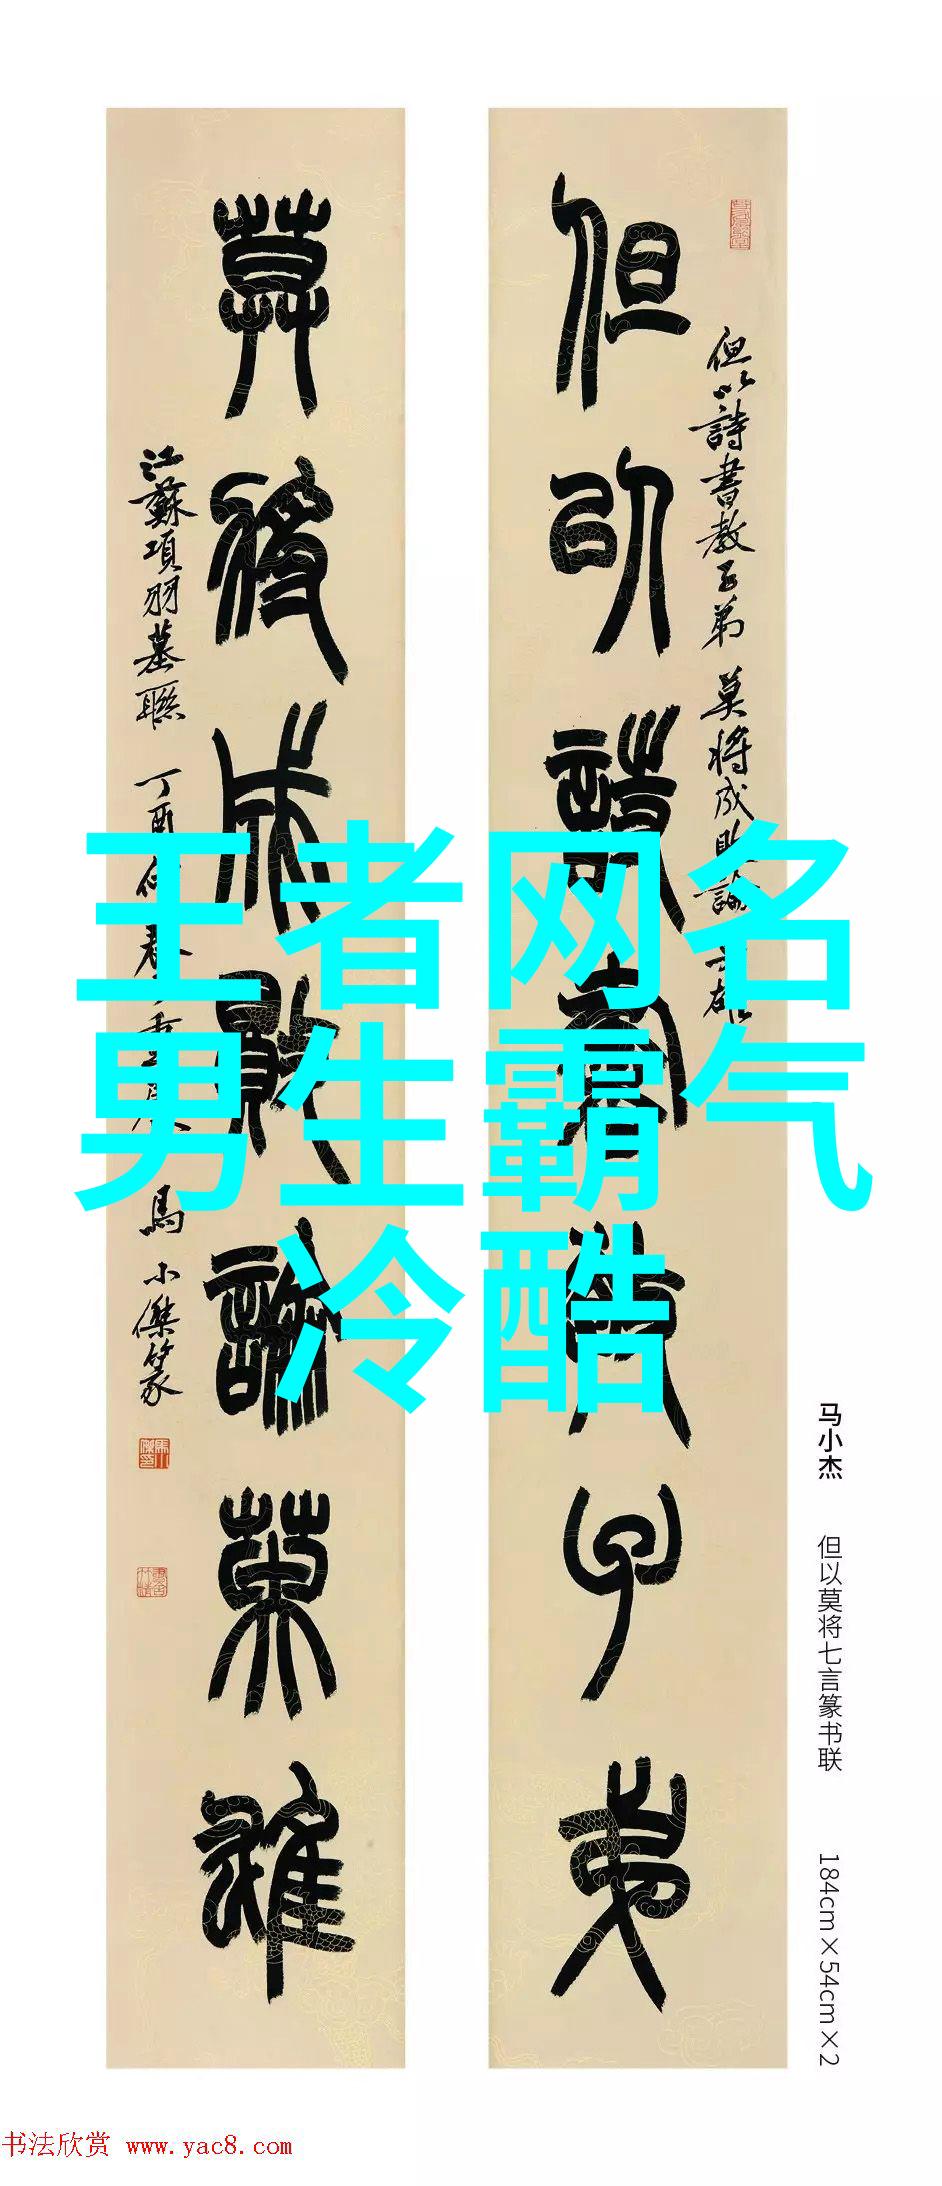 但以詩書教子弟
但以詩書教子弟 莫將成敗論英雄
莫將成敗論英雄
江蘇項羽墓聯 丁酉仲春
馬小傑篆
王者网名
男生霸气
冷酷
马小杰 但以莫将七言篆书联 184cm×54cm×2
书法欣赏 www.yac8.com